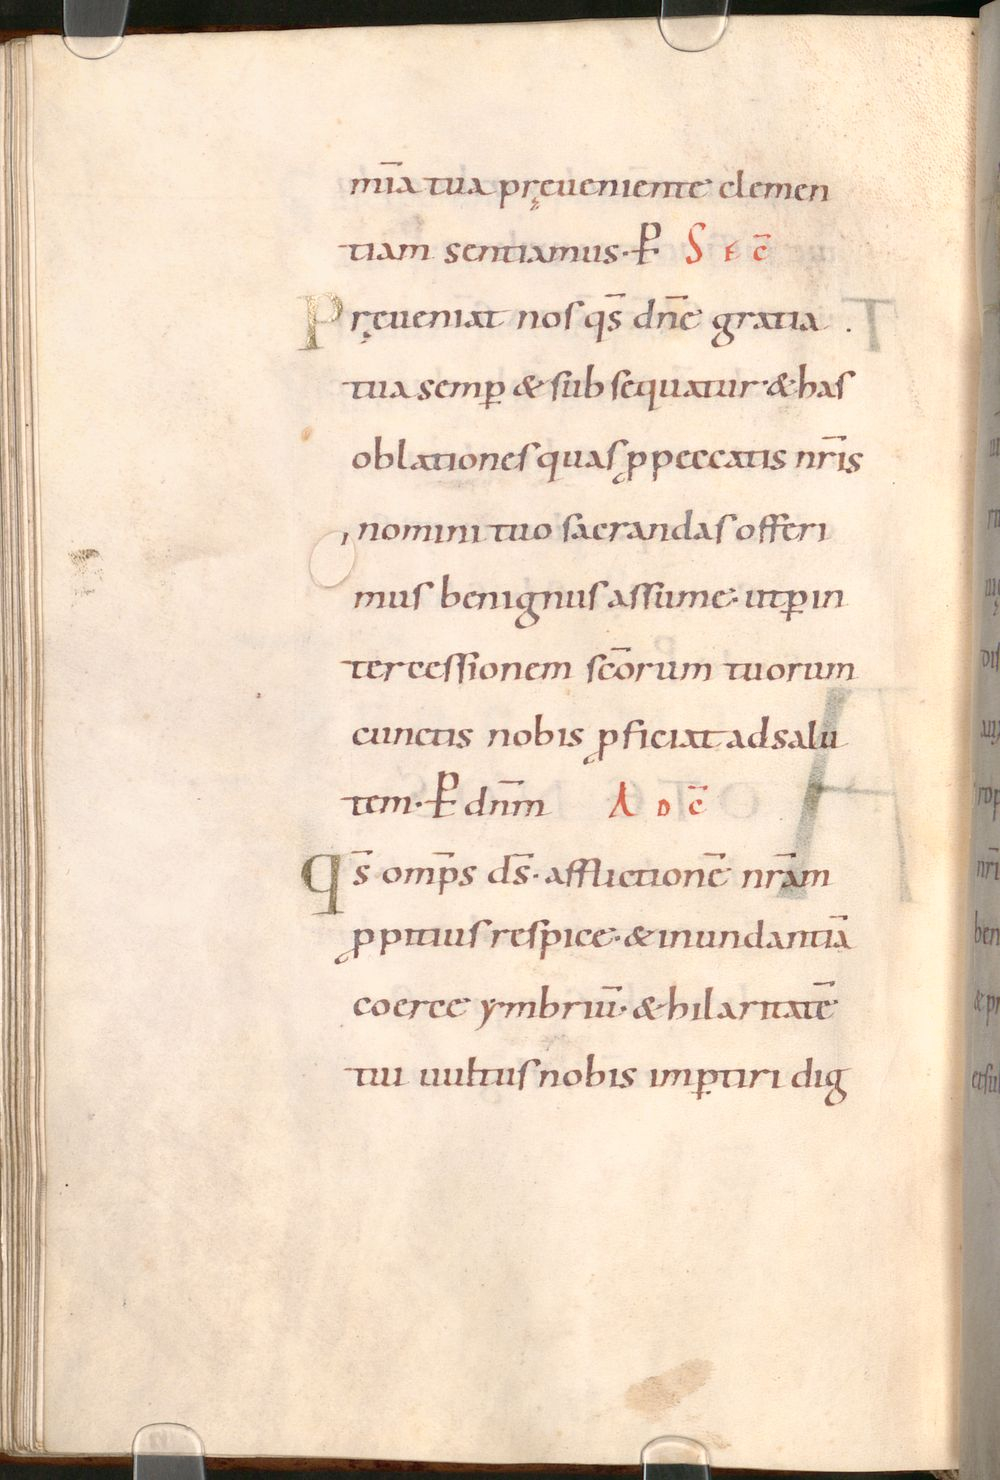 mīa tua pręueniente clemen
tiam sentiamus· P̄ S E C̄
Pręueniat nos qs̄ dn̄e gratia .
tua semꝑ & subsequatur· & has
oblationes quas ꝓ peccatis nr̄is
nomini tuo sacrandas offeri
mus benignus assume· ut ꝑ in
tercessionem sc̄orum tuorum
cunctis nobis ꝓficiat ad salu
tem· P̄ dn̄m A D C̄
Qs̄ omp̄s ds̄· afflictionē nr̄am
ꝓpitius respice· & inundantiā
coerce ymbriū· & hilaritatē
tui uultus nobis imꝑtiri dig